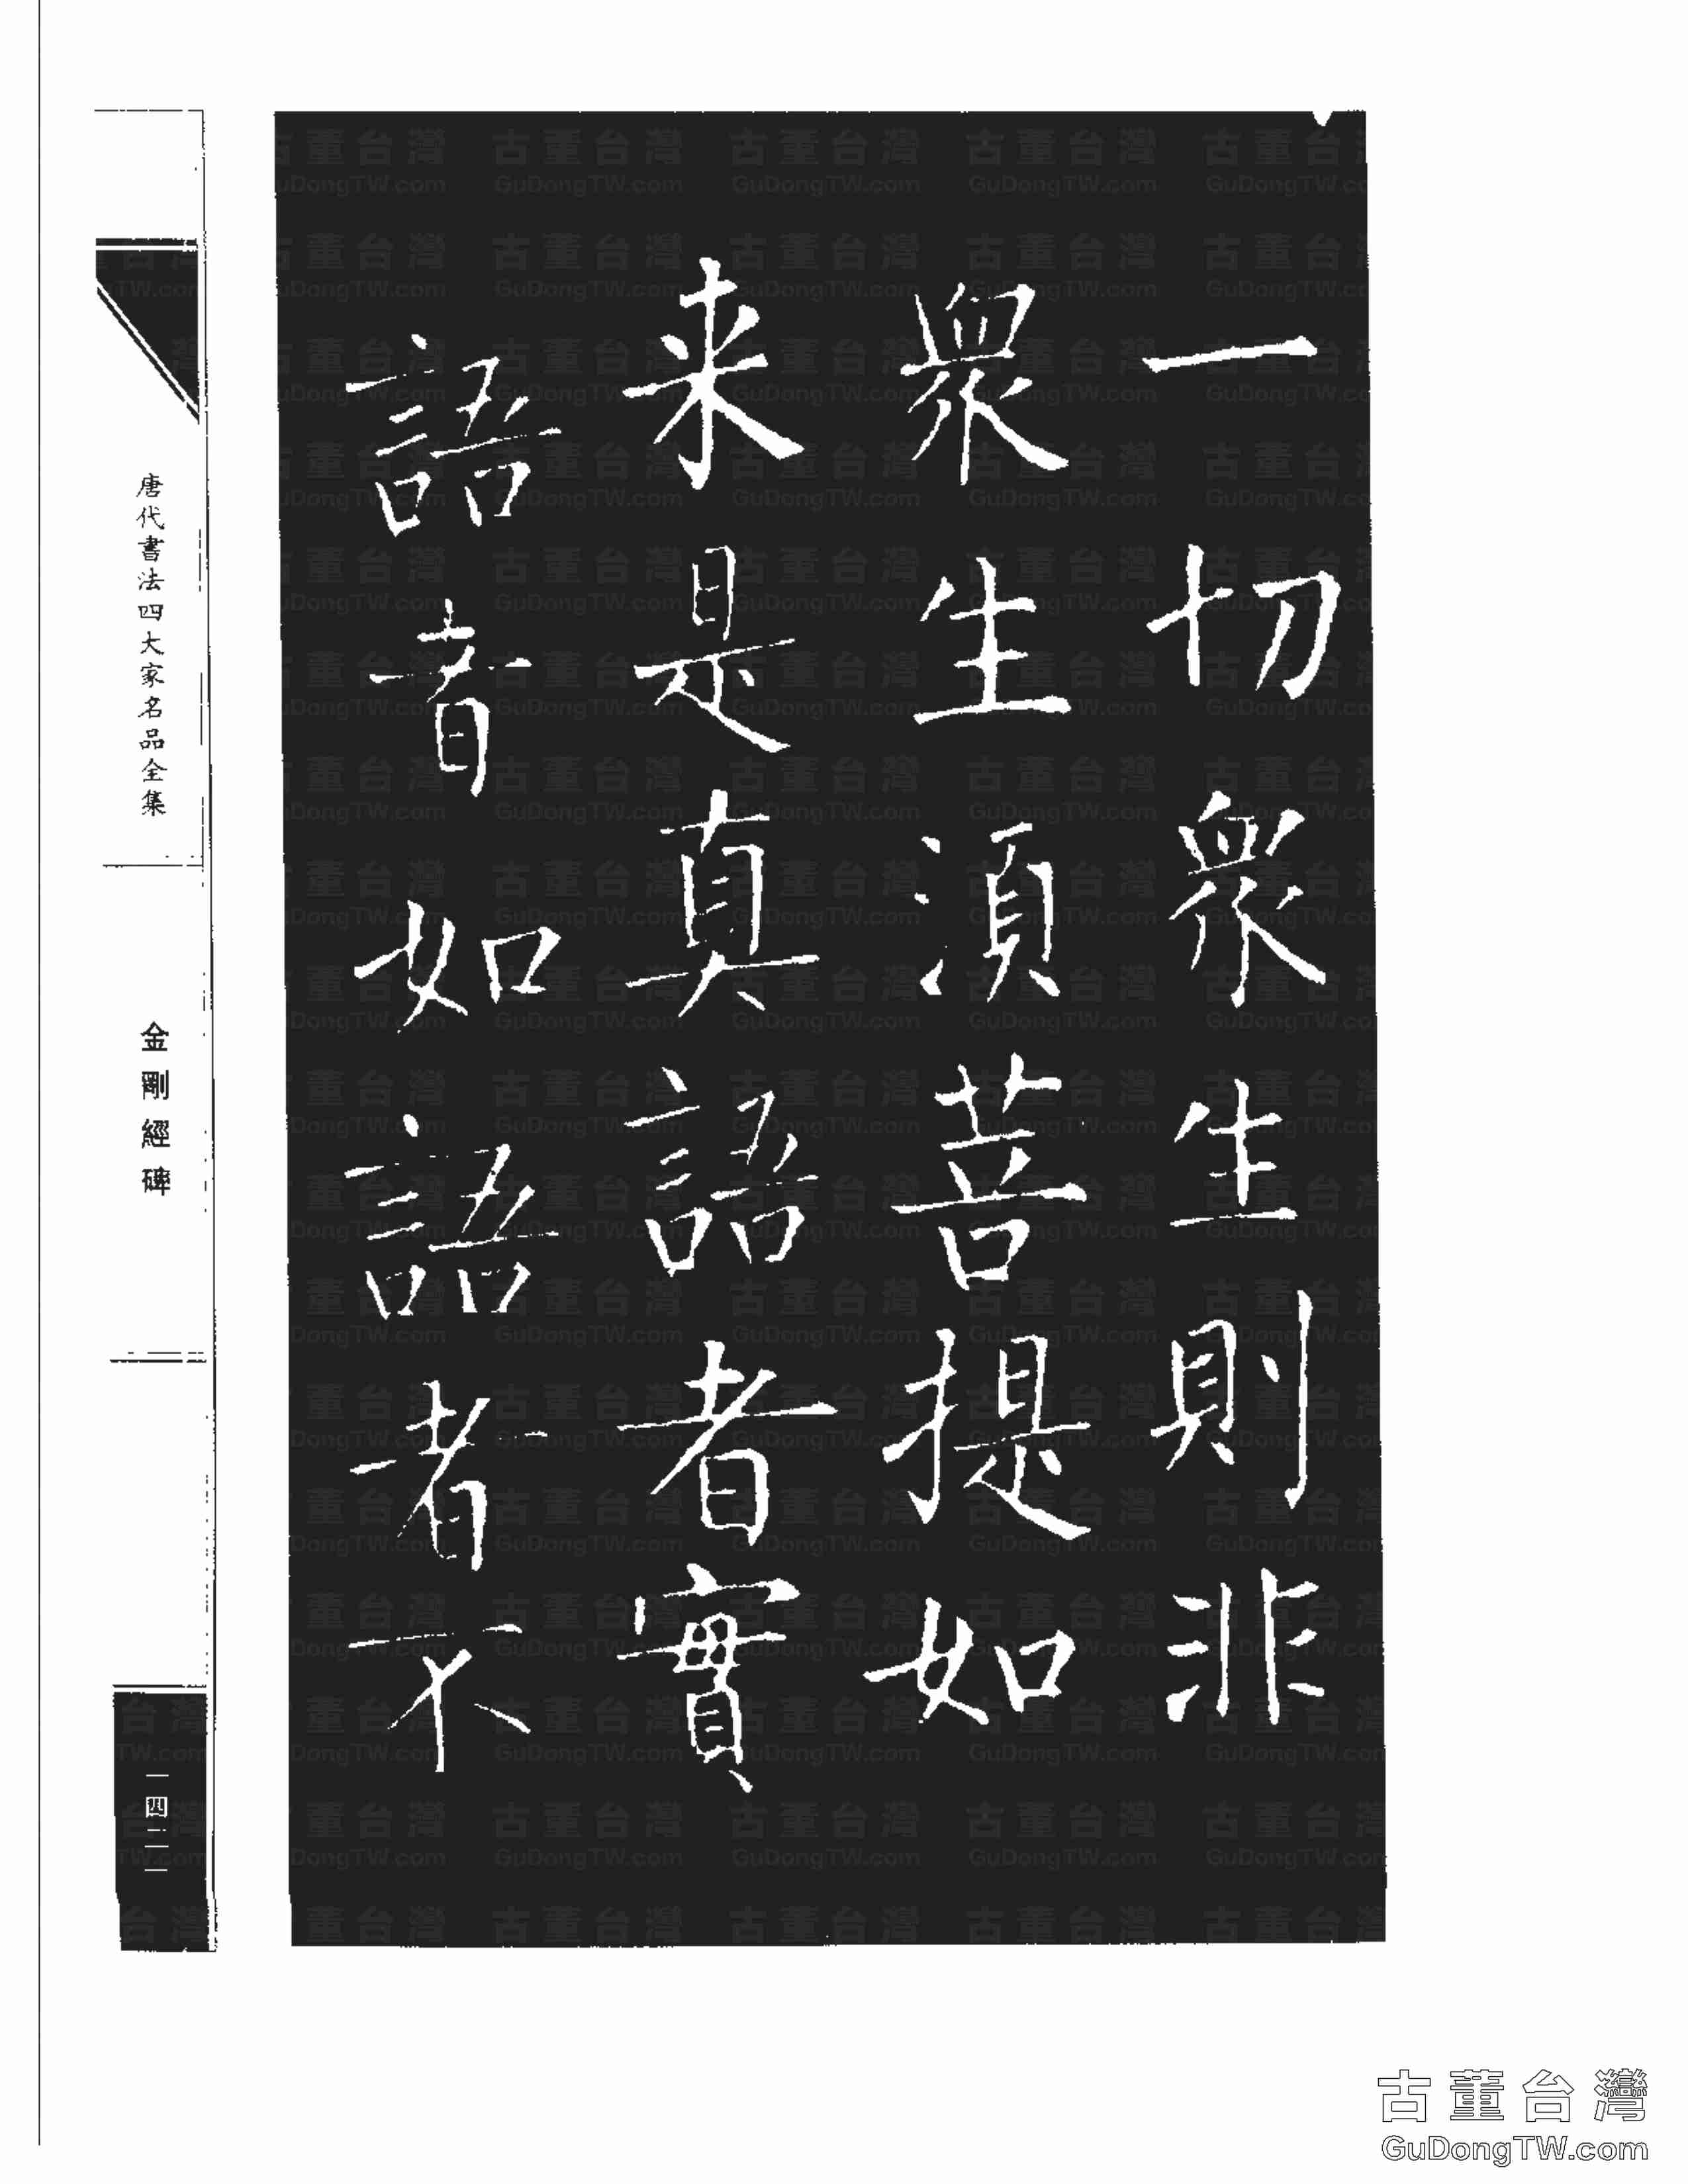 一切衆生則非
衆生湏菩提如
来是真語者實
語者如語者不
唐代書法四大家名品全集
金剛經碑
一四二一
古董台灣
GuDongTW.com